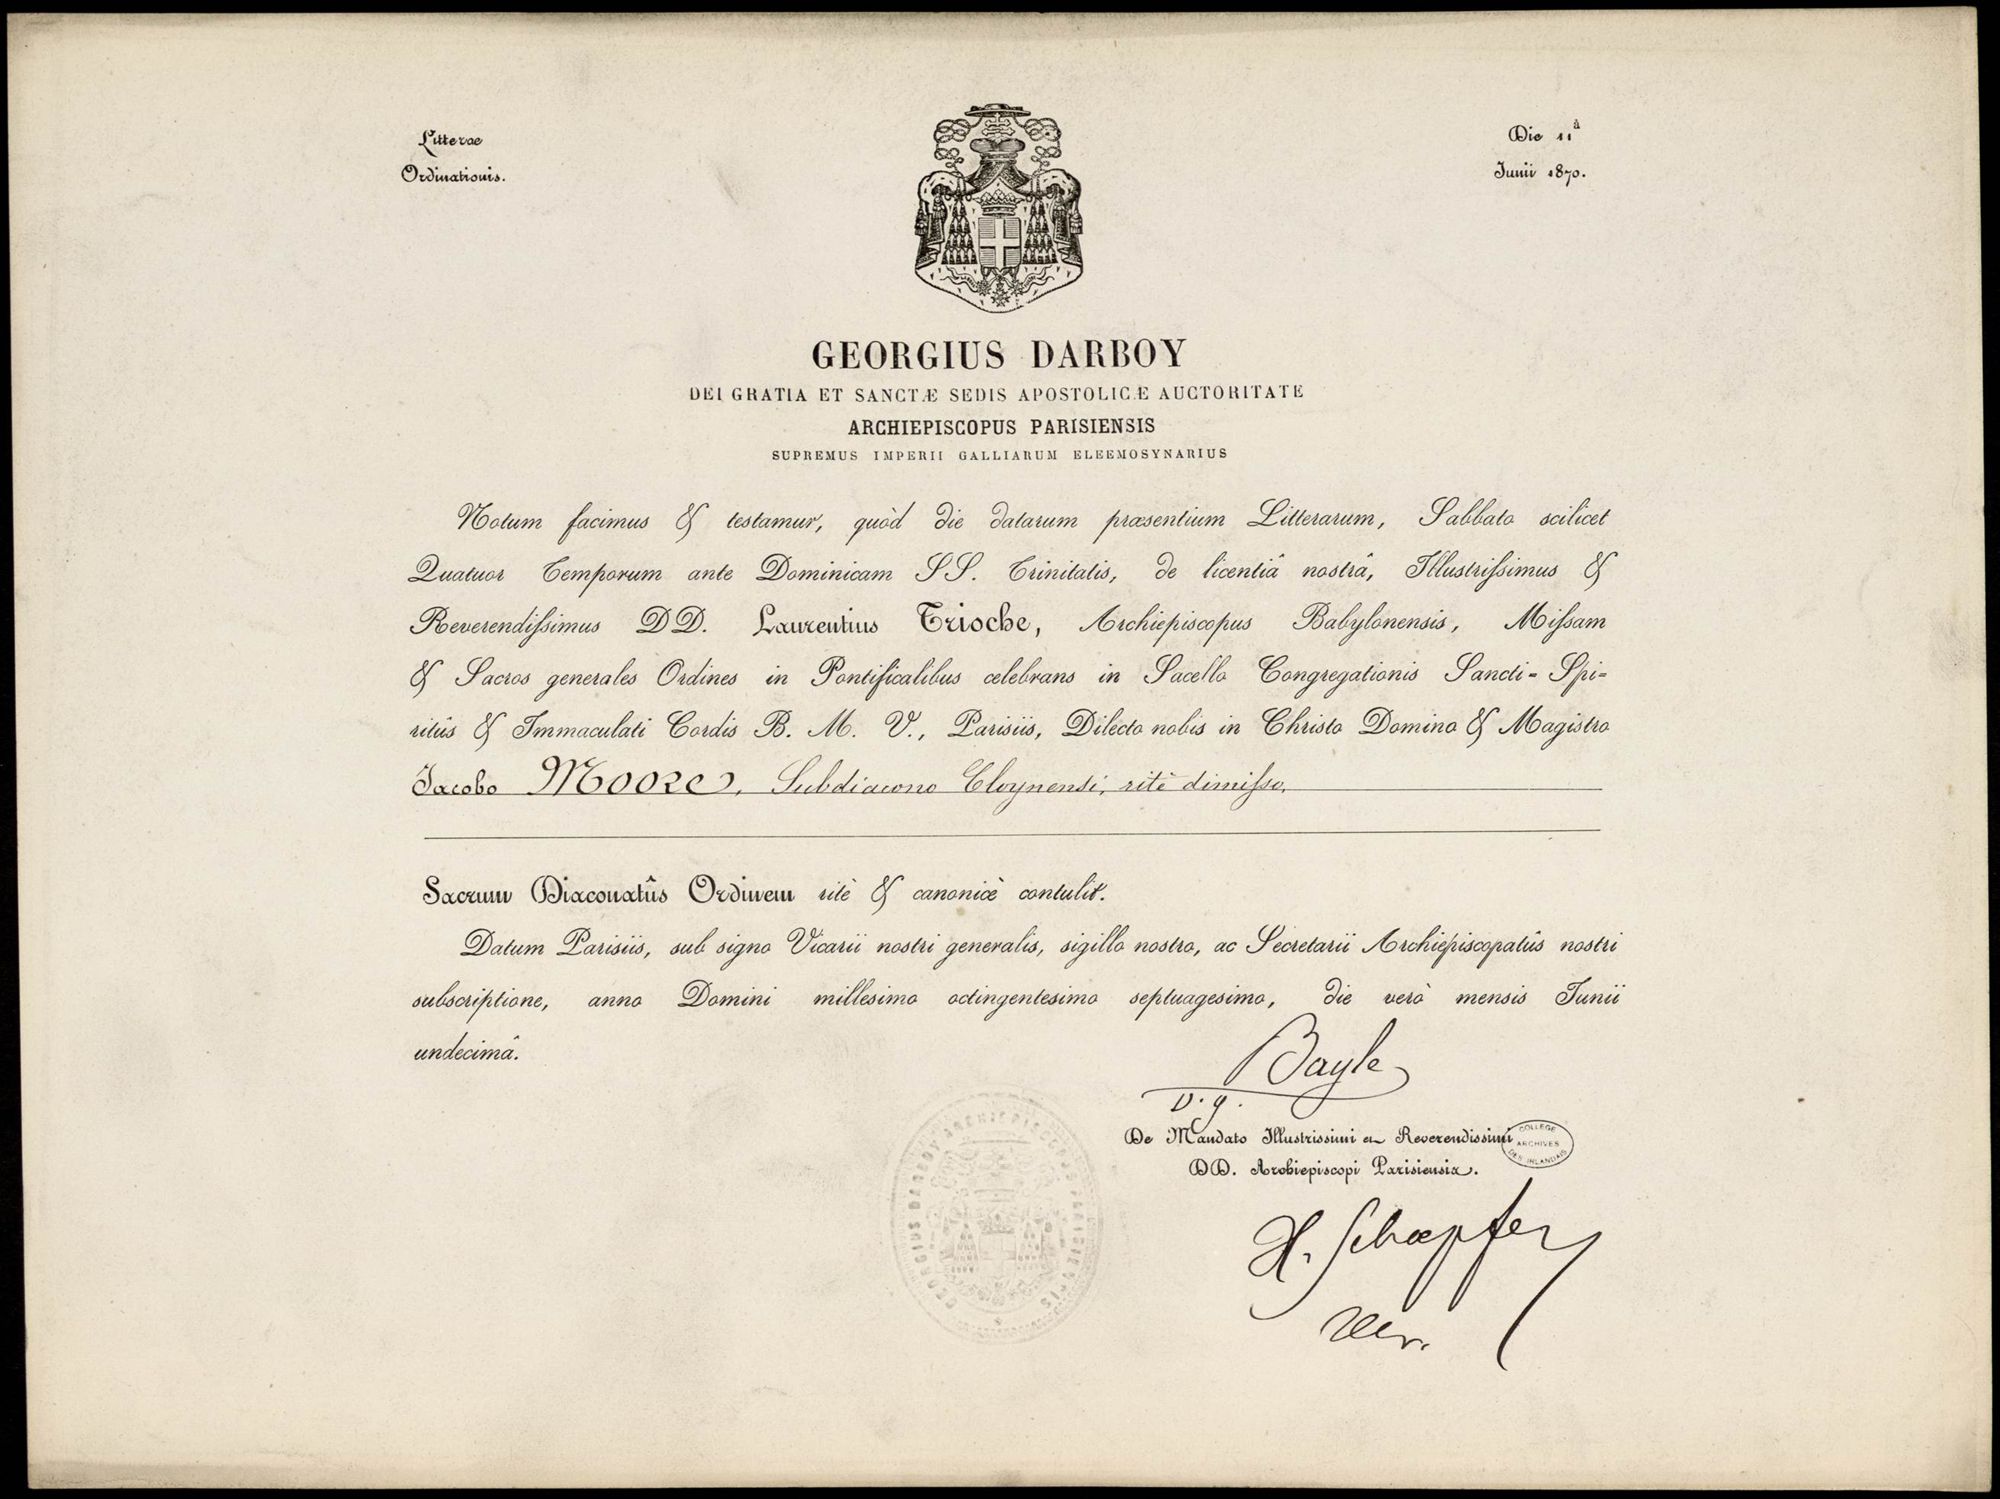 Litterae
Ordinationis.
Die 11ª
Junii 1870.
GEORGIUS DARBOY
DEI GRATIA ET SANCTÆ SEDIS APOSTOLICÆ AUCTORITATE
ARCHIEPISCOPUS PARISIENSIS
SUPREMUS IMPERII GALLIARUM ELEEMOSYNARIUS
Notum facimus & testamur, quòd die datarum præsentium Litterarum, Sabbato scilicet
Quatuor Temporum ante Dominicam SS. Trinitatis, de licentiâ nostrâ, Illustrissimus &
Reverendissimus DD. Laurentius Trioche, Archiepiscopus Babylonensis, Missam
& Sacros generales Ordines in Pontificalibus celebrans in Sacello Congregationis Sancti-Spi-
ritûs & Immaculati Cordis B. M. V., Parisiis, Dilecto nobis in Christo Domino & Magistro
Jacobo Moore, Subdiacono Cloynensi, ritè dimisso,
Sacrum Diaconatûs Ordinem ritè & canonicè contulit.
Datum Parisiis, sub signo Vicarii nostri generalis, sigillo nostro, ac Secretarii Archiepiscopatûs nostri
subscriptione, anno Domini millesimo octingentesimo septuagesimo, die verò mensis Junii
undecimâ.
Bayle
v. g.
De Mandato Illustrissimi et Reverendissimi
DD. Archiepiscopi Parisiensis.
COLLEGE
ARCHIVES
DES IRLANDAIS
H. Schoepfer
GEORGIUS DARBOY ARCHIEPISCOPUS PARISIENSIS